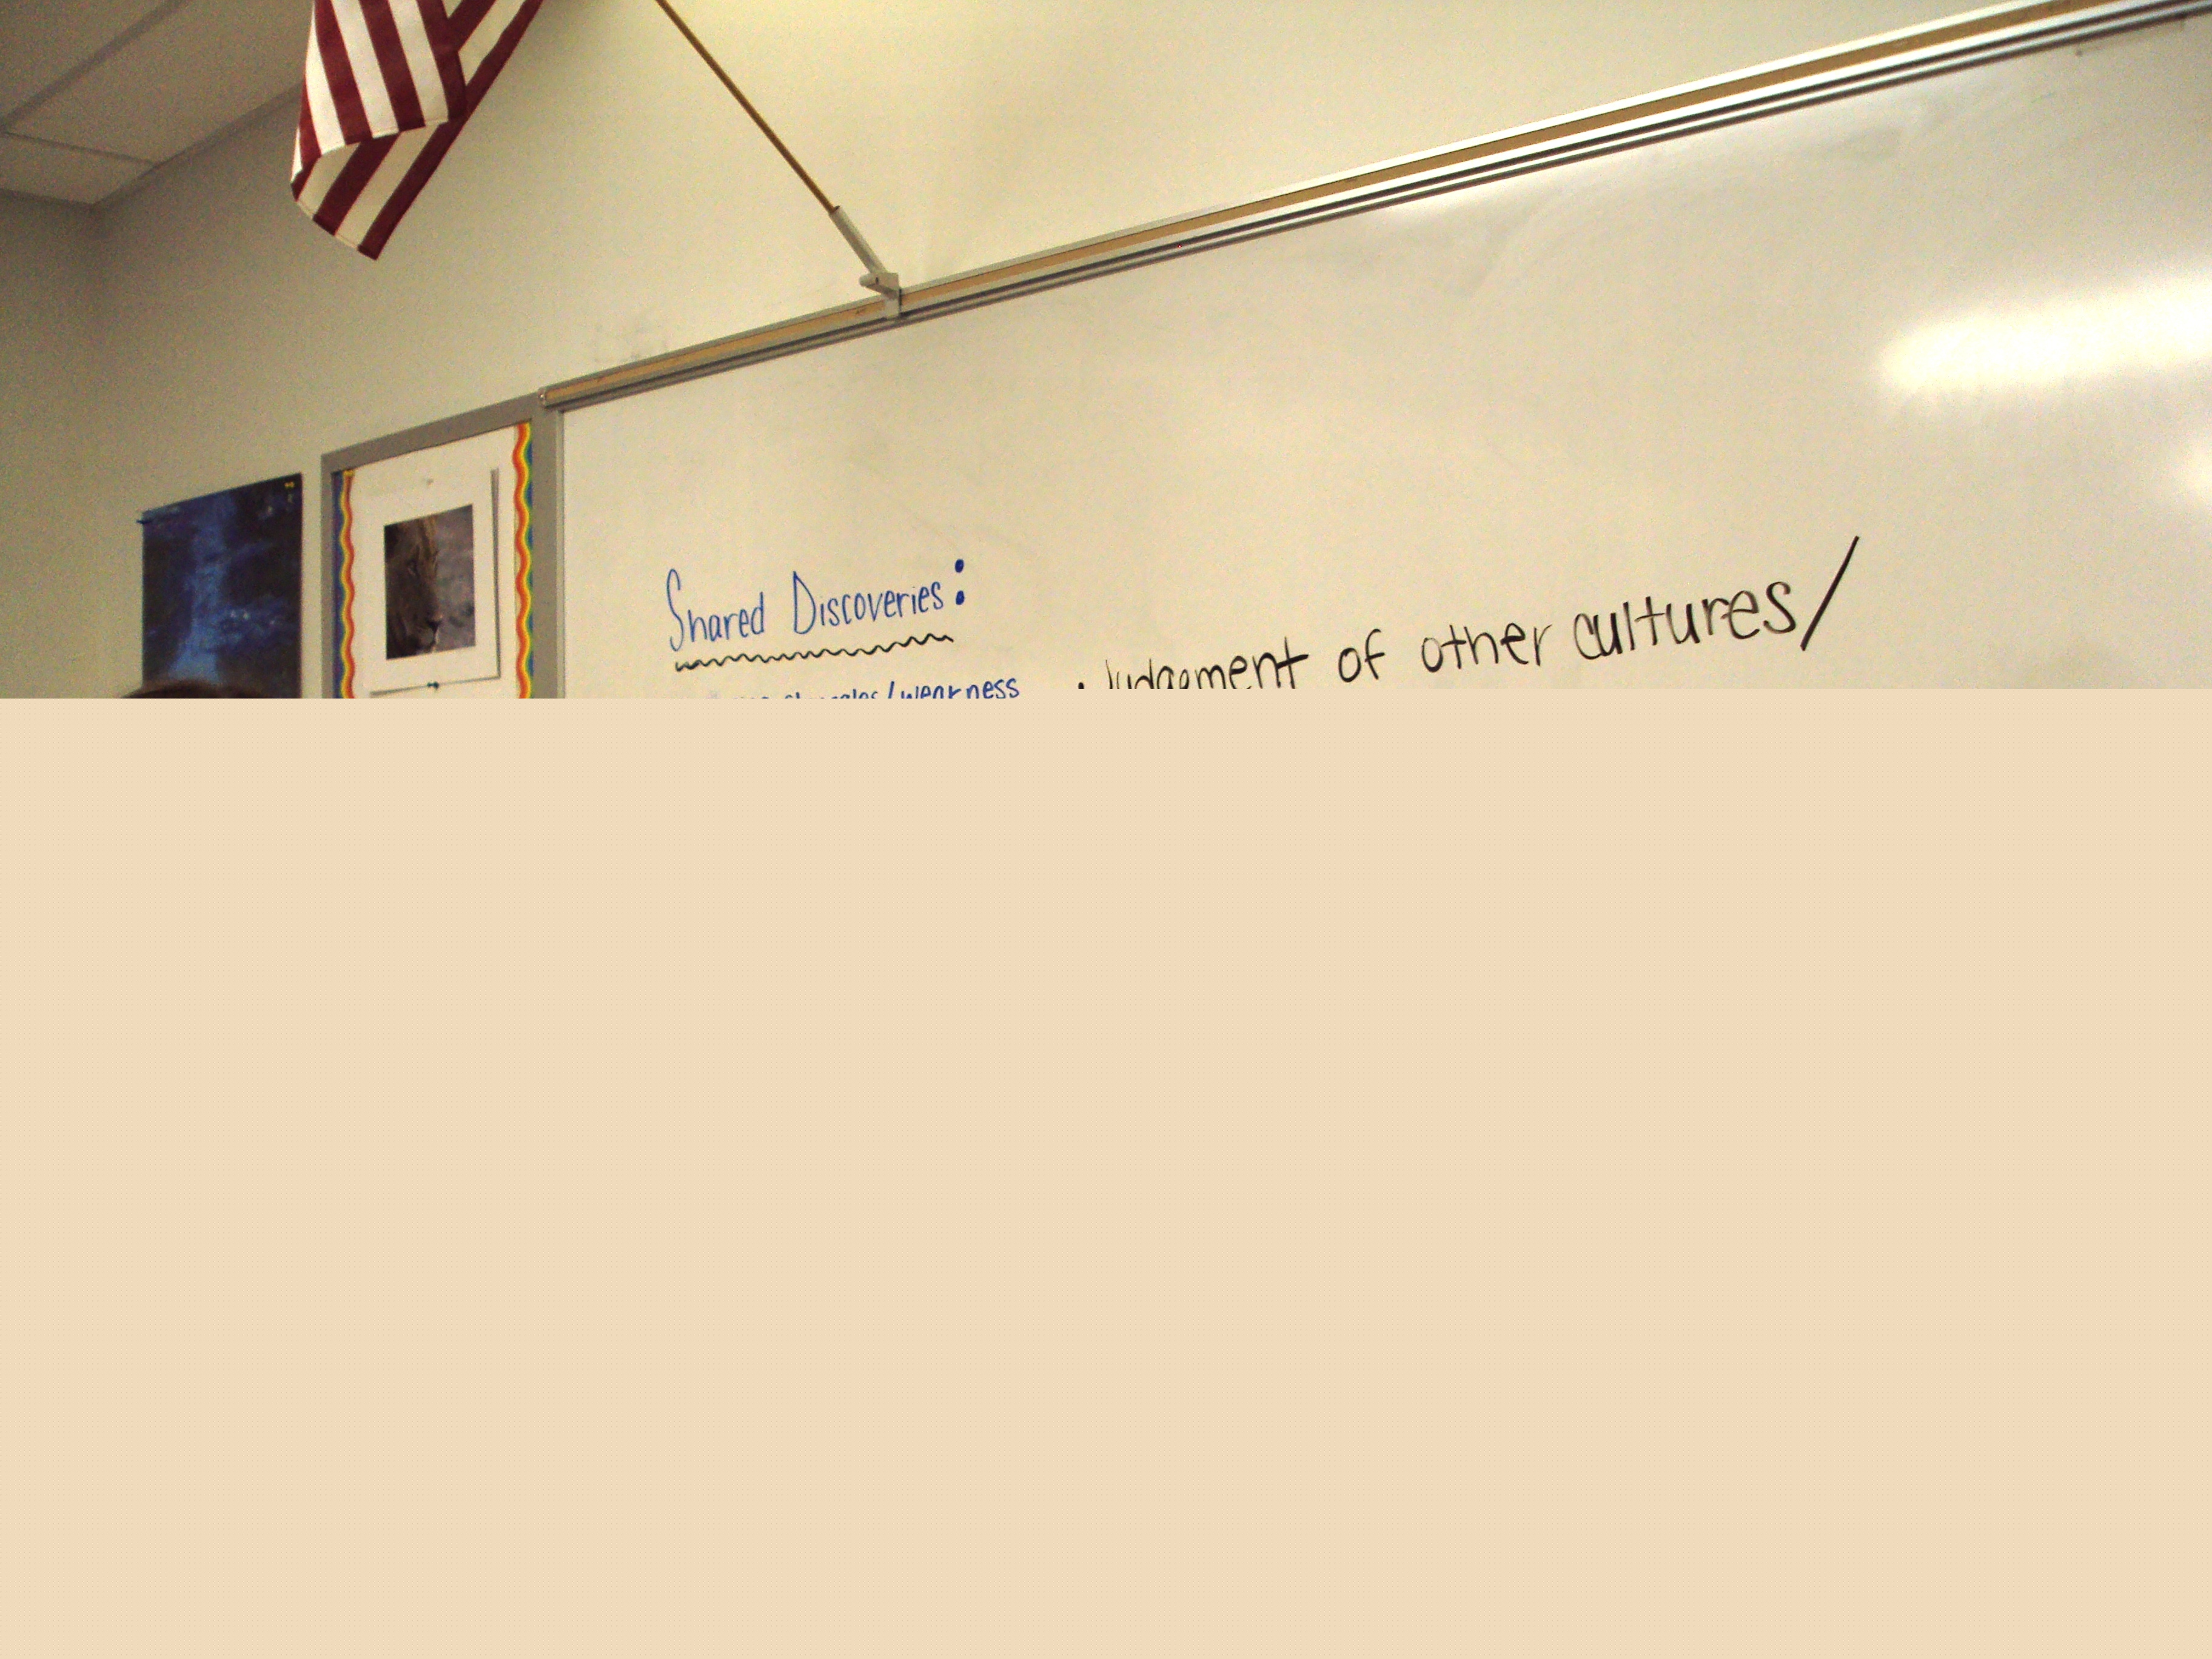 Shared Discoveries:
/weakness
• Judgement of other cultures/